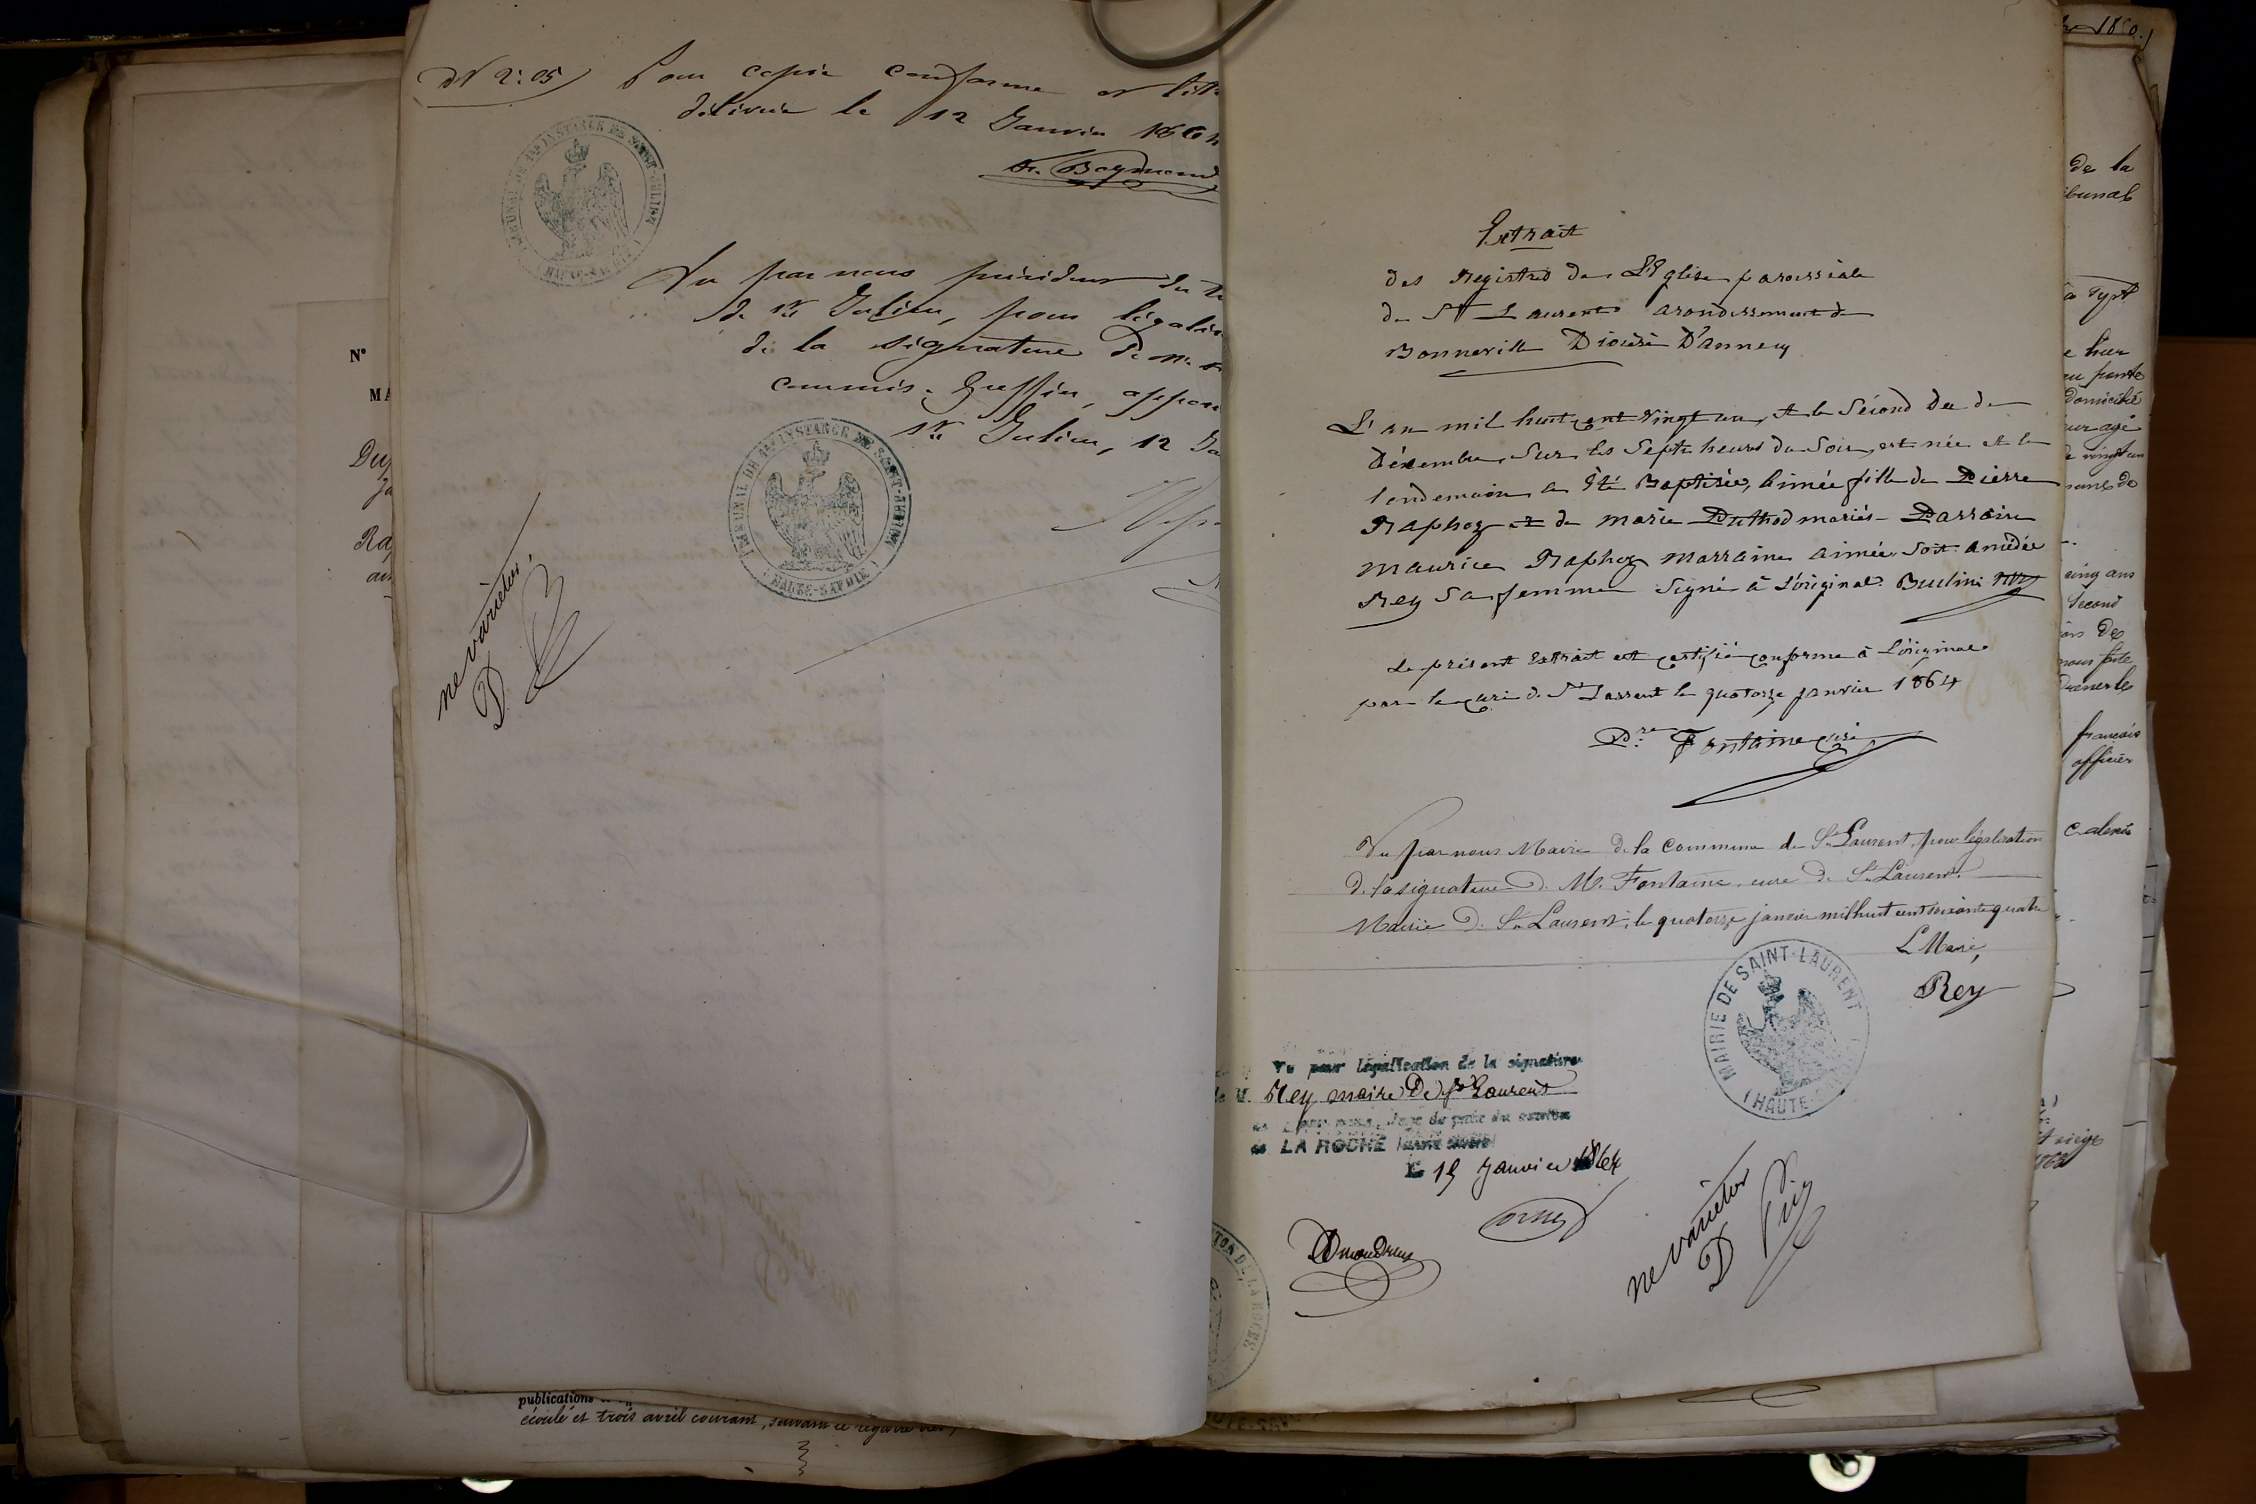 N° 2:05 Pour copie conforme et litt
délivrée le 12 Janvier 1864
Fr. Beymond
TRIBUNAL DE 1re INSTANCE DE SAINT-JULIEN
(HAUTE-SAVOIE)
Vu par nous président du tr
de St Julien, pour légalisa
de la signature de Mr
commis-Greffier, appos
St Julien, 12 Ja
TRIBUNAL DE 1re INSTANCE DE SAINT-JULIEN
(HAUTE-SAVOIE)
ne varietur
D
N°
MA
Du
Ja
Ra
publications
écoulé et trois avril courant, suivant le régistre
Extrait
des Registres de L'Eglise paroissiale
de St Laurent arondissement de
Bonneville Diocèse D'annecy
L'an mil huit cent vingt un, et le Sécond du de
Décembre, Sur les Sept heures du Soir, est née et le
lendemain a Eté Baptisée, Aimée fille de Pierre
Raphoz et de marie Duthod mariés - Parrain
Maurice Raphoz marraine aimée soit amédée
Rey Sa femme Signé à L'original
Le présent Extrait est certifié conforme à L'original
par le curé de St Laurent le quatorze janvier 1864
Fontaine curé
Vu par nous Maire de la commune de St Laurent, pour légalisation
de la signature de M. Fontaine, curé de St Laurent.
Mairie de St Laurent, le quatorze janvier mil huit cent soixante quatre
Le Maire,
Rey
MAIRIE DE SAINT-LAURENT
(HAUTE-
Vu pour légalisation de la signature
de M. Rey maire De St Laurent
par nous, Juge de paix du canton
de LA ROCHE (HAUTE SAVOIE)
Le 15 Janvier 1864
ne varietur
D
TON DE LA ROCHE
1860
de la
ibunal
hier
domicilié
ur agé
de vingt un
cinq ans
Second
français
officier
siège